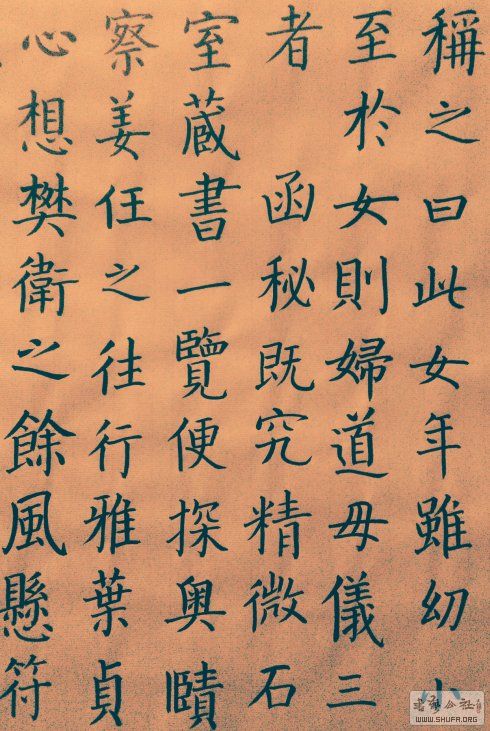 稱之曰此女年雖幼
至於女則婦道母儀三
者 函秘既究精微石
室蔵書一覽便探奥賾
察姜任之往行雅葉貞
心想樊衛之餘風懸符
WWW.SHUFA.ORG